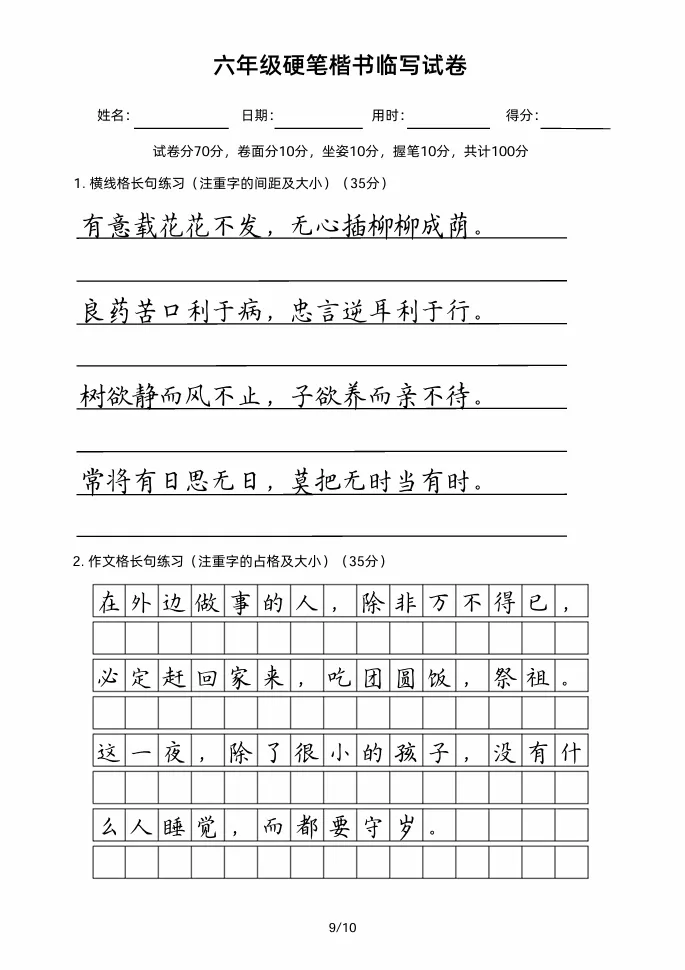 六年级硬笔楷书临写试卷
姓名： 日期： 用时： 得分：
试卷分70分，卷面分10分，坐姿10分，握笔10分，共计100分
1. 横线格长句练习（注重字的间距及大小）（35分）
有意载花花不发，无心插柳柳成荫。
良药苦口利于病，忠言逆耳利于行。
树欲静而风不止，子欲养而亲不待。
常将有日思无日，莫把无时当有时。
2. 作文格长句练习（注重字的占格及大小）（35分）
在外边做事的人，除非万不得已，
必定赶回家来，吃团圆饭，祭祖。
这一夜，除了很小的孩子，没有什
么人睡觉，而都要守岁。
9/10